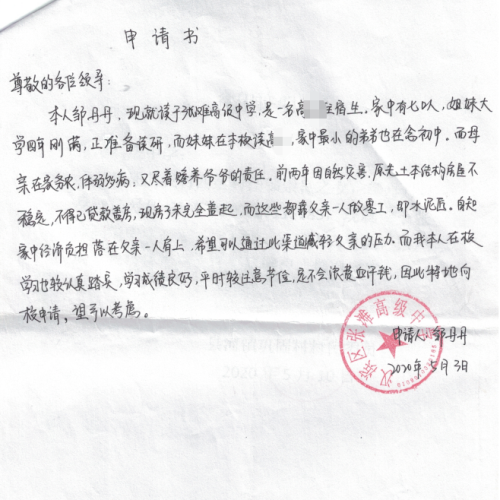 申请书
尊敬的各位领导：
本人邹丹丹，现就读于张滩高级中学，是一名高 住宿生。家中有七口人，姐姐大
学四年刚满，正准备读研，而妹妹在本校读高 ，家中最小的弟弟也在念初中。而母
亲在家务农，体弱多病，又尽着赡养爷爷的责任。前两年因自然灾害，原先土木结构房屋不
稳定，不得已贷款盖房，现房子未完全盖起，而这些都靠父亲一人做零工，即水泥匠。自起
家中经济负担落在父亲一人肩上，希望可以通过此渠道减轻父亲的压力。而我本人在校
学习也较认真踏实，学习成绩良好，平时较注意节俭，是不会浪费血汗钱，因此特地向
校申请，望予以考虑。
申请人：邹丹丹
2020年5月3日
汉滨区张滩高级中学